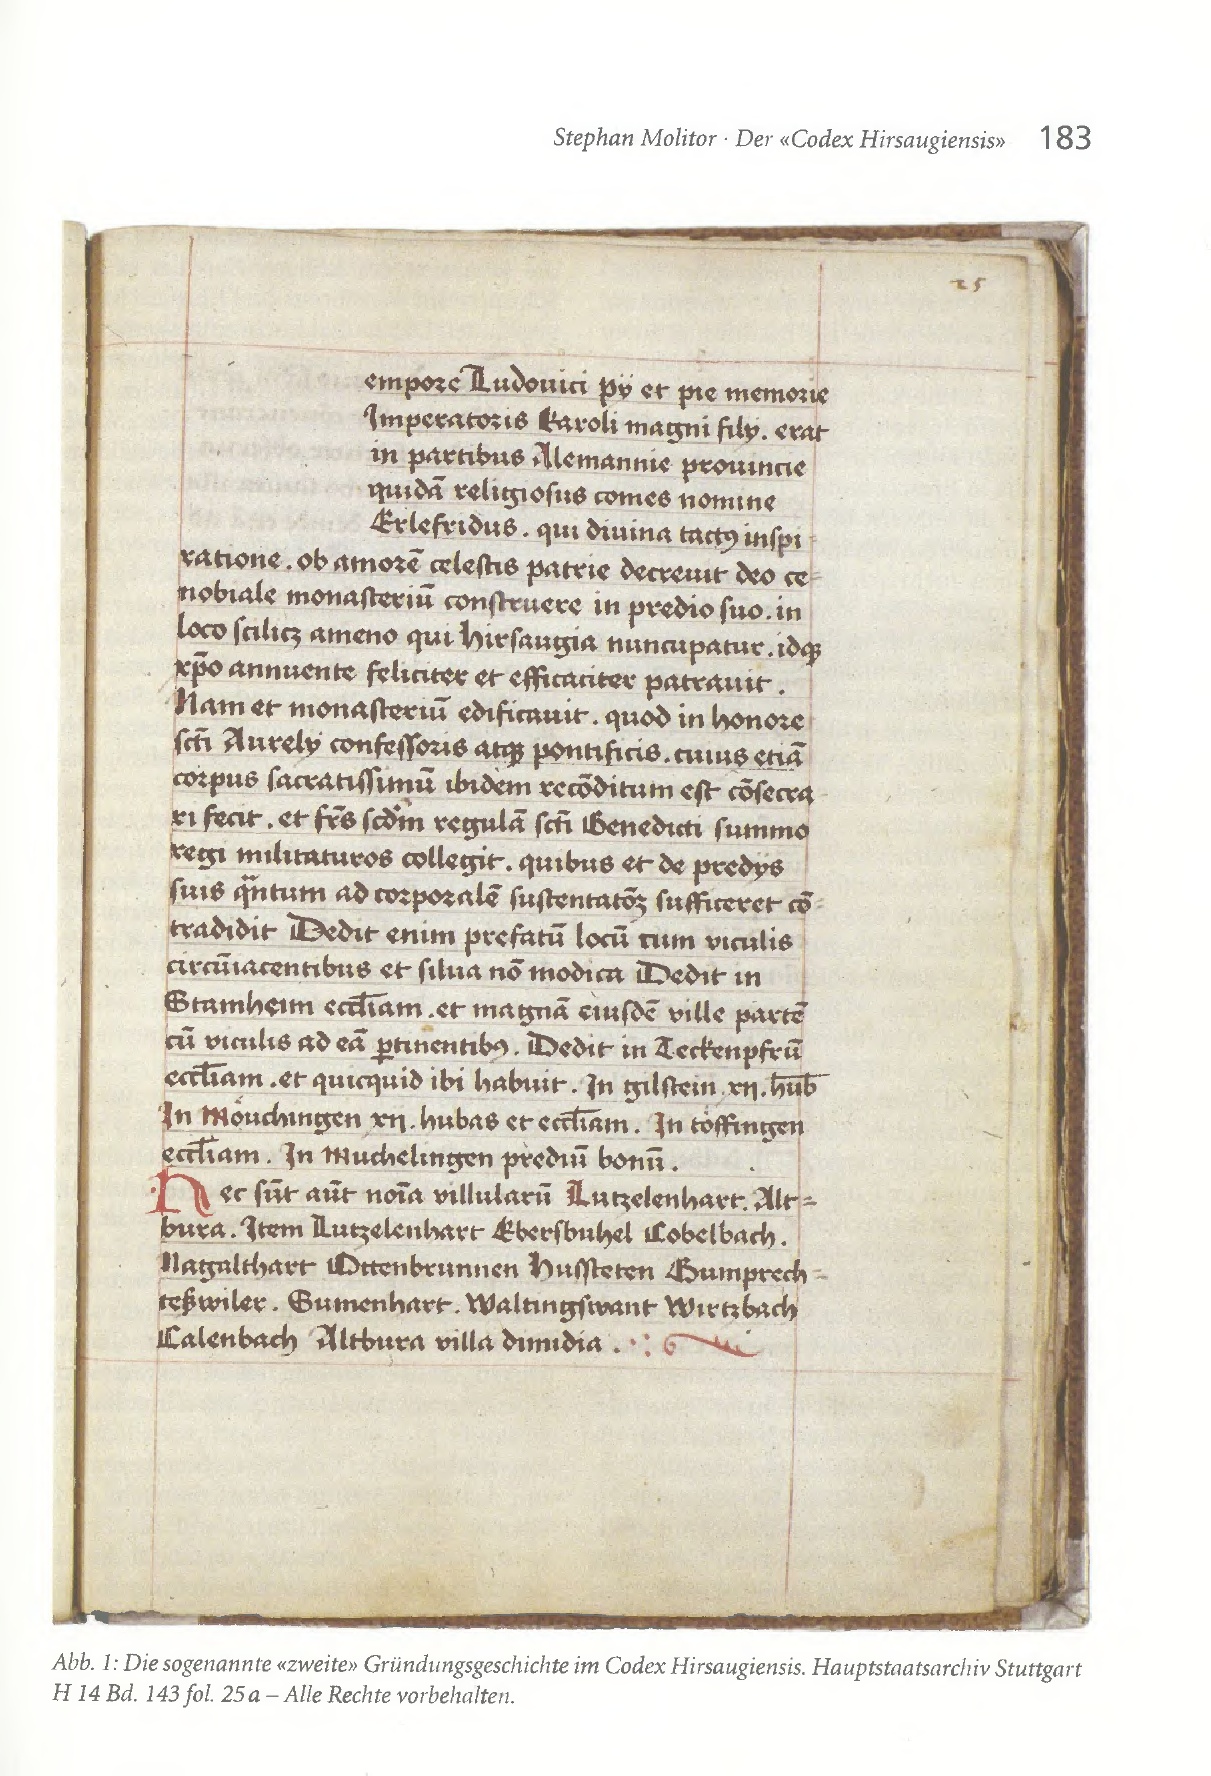 Stephan Molitor · Der «Codex Hirsaugiensis» 183
25
empore Ludouici pÿ et pie memorie
Imperatoris Karoli magni filÿ. erat
in partibus Alemannie prouincie
quidā religiosus comes nomine
Erlefridus. qui diuina tactꝰ inspi
ratione. ob amorē celestis patrie decreuit deo ce=
nobiale monasteriū construere in predio suo. in
loco scilicꝫ ameno qui hirsaugia nuncupatur. idqꝫ
xp̄o annuente feliciter et efficaciter patrauit.
Nam et monasteriū edificauit. quod in honore
sc̄ti Aurelÿ confessoris atqꝫ pontificis. cuius etiā
corpus sacratissimū ibidem recōditum est cōsecra
ri fecit. et fr̄s scd̄m regulā sc̄ti Benedicti summo
regi militaturos collegit. quibus et de predÿs
suis qᷓntum ad corporalē sustentatōꝫ sufficeret cō=
tradidit Dedit enim prefatū locū cum viculis
circūiacentibus et silua nō modica Dedit in
Stamheim eccl̄iam. et magnā eiusdē ville partē
cū viculis ad eā ꝑtinentibꝰ. Dedit in Teckenpfrū
eccl̄iam. et quicquid ibi habuit. In gilstein. xij. hub̄
In Möuchingen xij. hubas et eccl̄iam. In töffingen
eccl̄iam. In Muchelingen prediū bonū.
Hec sūt aūt noīa villularū Lutzelenhart. Alt=
bura. Item Lutzelenhart Ebersbuhel Cobelbach.
Nagalthart Ottenbrunnen Hussteten Gumprech=
teßwiler. Gumenhart. Waltingswant Wirtzbach
Calenbach Altbura villa dimidia.
Abb. 1: Die sogenannte «zweite» Gründungsgeschichte im Codex Hirsaugiensis. Hauptstaatsarchiv Stuttgart
H 14 Bd. 143 fol. 25 a – Alle Rechte vorbehalten.